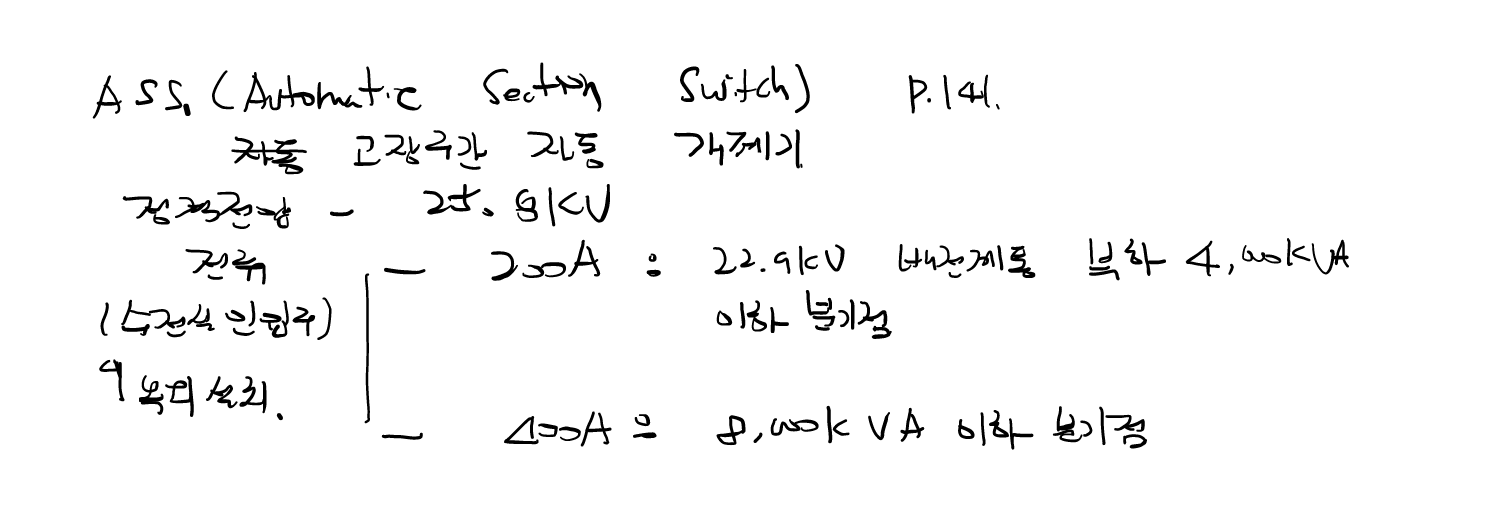 ASS. (Automatic Section Switch) P.141.
자동 고장구간 자동 개폐기
정격전압 - 25.8kV
전류 - 200A : 22.9kV 배전계통 부하 4,000kVA
(수전실 인입주) 이하 분기점
옥외설치.
- 400A : 8,000kVA 이하 분기점